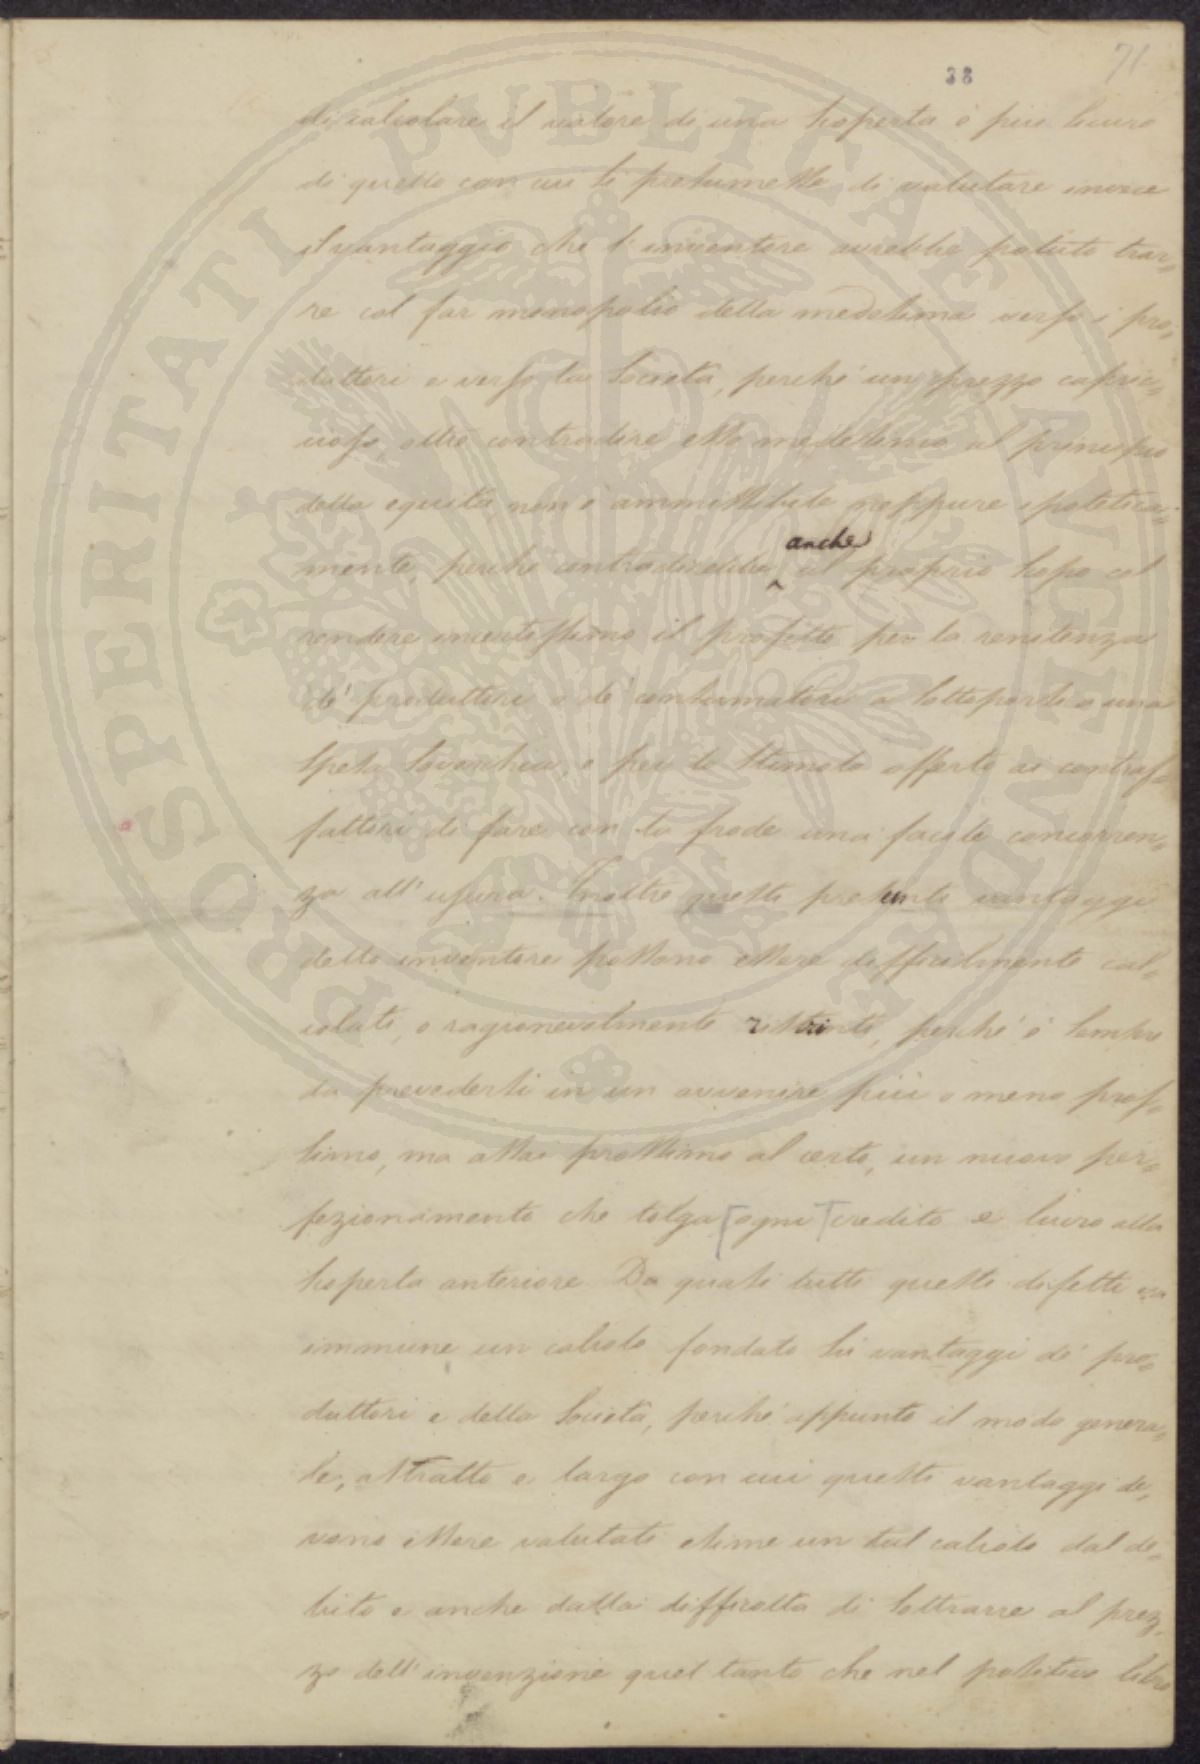 71
38
di calcolare il valore di una scoperta è più sicuro
di quello con cui si presumesse di valutare invece
il vantaggio che l'inventore avrebbe potuto trar=
re col far monopolio della medesima verso i pro=
duttori e verso la Società, perchè un prezzo capric=
cioso, oltre contradire esso medesimo al principio
della equità non è ammissibile neppure ipotetica=
mente, perchè contradirebbe anche al proprio scopo col
rendere incertissimo il profitto per la renitenza
de' produttori o de' consumatori a sottoporsi a una
spesa soverchia, e per lo stimolo offerto ai contraf=
fattori di fare con la frode una facile concorren=
za all'usura. Inoltre questi presunti vantaggi
dello inventore possono essere difficilmente cal=
colati, o ragionevolmente ristretti, perchè è sempre
da prevedersi in un avvenire più o meno pros=
simo, ma assai prossimo al certo, un nuovo per=
fezionamento che tolga [ogni] credito e lucro alla
scoperta anteriore. Da quali tutti questi difetti va
immune un calcolo fondato su' vantaggi de' pro=
duttori e della Società, perchè appunto il modo genera=
le, astratto e largo con cui questi vantaggi de=
vono essere valutati esime un tal calcolo dal de=
bito e anche dalla difficoltà di sottrarre al prez=
zo dell'invenzione quel tanto che nel positivo libro
PROSPERITATI PVBLICAE AVGENDAE